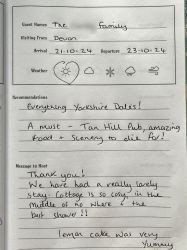 Guest Names The Family
Visiting From Devon
Arrival 21-10-24 Departure 23-10-24
Weather
Recommendations
Everything Yorkshire Dales!
A must - Tan Hill Pub, amazing
food + scenery to die for!
Message to Host
Thank you!
We have had a really lovely
stay. Cottage is so cosy, in the
middle of no where + the
best shower!!
lemon cake was very
yummy